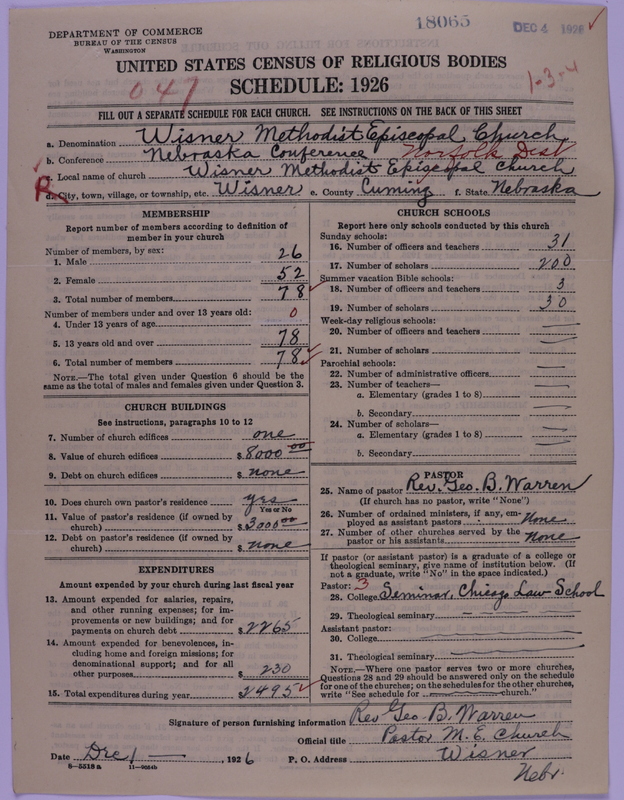 DEPARTMENT OF COMMERCE
BUREAU OF THE CENSUS
WASHINGTON
18065
DEC 4 1926
UNITED STATES CENSUS OF RELIGIOUS BODIES
SCHEDULE: 1926
047
1-3-4
FILL OUT A SEPARATE SCHEDULE FOR EACH CHURCH. SEE INSTRUCTIONS ON THE BACK OF THIS SHEET
a. Denomination Wisner Methodist Episcopal Church
b. Conference Nebraska Conference Norfolk Dist
c. Local name of church Wisner Methodist Episcopal Church
R d. City, town, village, or township, etc. Wisner e. County Cuming f. State Nebraska
MEMBERSHIP
Report number of members according to definition of
member in your church
Number of members, by sex:
1. Male 26
2. Female 52
3. Total number of members 78
Number of members under and over 13 years old:
4. Under 13 years of age 0
5. 13 years old and over 78
6. Total number of members 78
NOTE.—The total given under Question 6 should be the
same as the total of males and females given under Question 3.
CHURCH BUILDINGS
See instructions, paragraphs 10 to 12
7. Number of church edifices one
8. Value of church edifices $8000 00
9. Debt on church edifices $ none
10. Does church own pastor's residence yes
Yes or No
11. Value of pastor's residence (if owned by
church) $3000 00
12. Debt on pastor's residence (if owned by
church) $ none
EXPENDITURES
Amount expended by your church during last fiscal year
13. Amount expended for salaries, repairs,
and other running expenses; for im-
provements or new buildings; and for
payments on church debt $2265
14. Amount expended for benevolences, in-
cluding home and foreign missions; for
denominational support; and for all
other purposes $ 230
15. Total expenditures during year $2495
CHURCH SCHOOLS
Report here only schools conducted by this church
Sunday schools:
16. Number of officers and teachers 31
17. Number of scholars 200
Summer vacation Bible schools:
18. Number of officers and teachers 3
19. Number of scholars 30
Week-day religious schools:
20. Number of officers and teachers
21. Number of scholars
Parochial schools:
22. Number of administrative officers
23. Number of teachers—
a. Elementary (grades 1 to 8)
b. Secondary
24. Number of scholars—
a. Elementary (grades 1 to 8)
b. Secondary
PASTOR
25. Name of pastor Rev. Geo. B. Warren
(If church has no pastor, write "None")
26. Number of ordained ministers, if any, em-
ployed as assistant pastors None
27. Number of other churches served by the
pastor or his assistants None
If pastor (or assistant pastor) is a graduate of a college or
theological seminary, give name of institution below. (If
not a graduate, write "No" in the space indicated.)
Pastor: 3
28. College Seminar, Chicago Law School
29. Theological seminary
Assistant pastor:
30. College
31. Theological seminary
NOTE.—Where one pastor serves two or more churches,
Questions 28 and 29 should be answered only on the schedule
for one of the churches; on the schedules for the other churches,
write "See schedule for church."
Signature of person furnishing information Rev Geo. B. Warren
Official title Pastor M. E. Church
Date Dec 1 1926 P. O. Address Wisner
Nebr.
8-5518 a 11-9054b